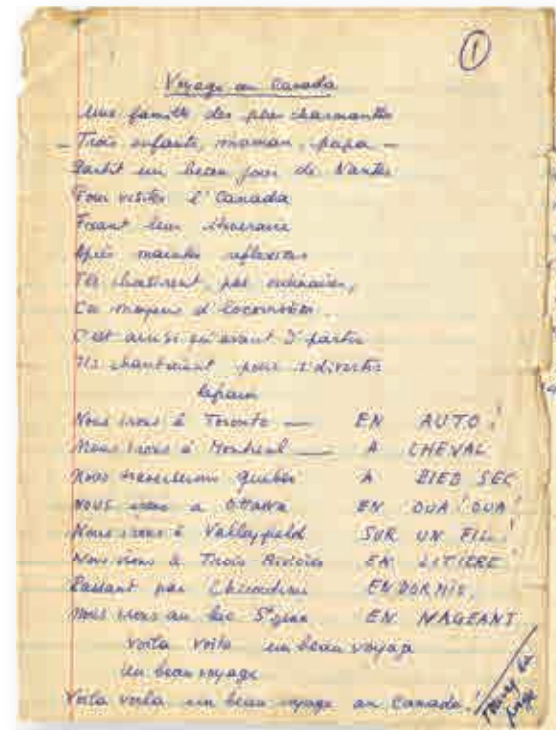 ①
Voyage au Canada
Une famille des plus charmantes
- Trois enfants, maman, papa -
Partit un beau jour de Nantes
Pour visiter l'Canada
Fixant leur itinéraire
Après maintes réflexions
Ils choisirent, pas ordinaires,
Ces moyens d'locomotion...
C'est ainsi qu'avant d'partir
Ils chantaient pour s'divertir
Refrain
Nous irons à Toronto — EN AUTO!
Nous irons à Montréal — A CHEVAL
Nous traverserons Québec A PIED SEC
NOUS irons à Ottawa EN OUA! OUA!
Nous irons à Valleyfield SUR UN FIL!
Nous irons à Trois Rivières EN LITIERE
Passant par Chicoutimi ENDORMIS,
Nous irons au lac St Jean EN NAGEANT
Voilà voilà un beau voyage
Un beau voyage
Voilà voilà un beau voyage au Canada!
Tournez la page